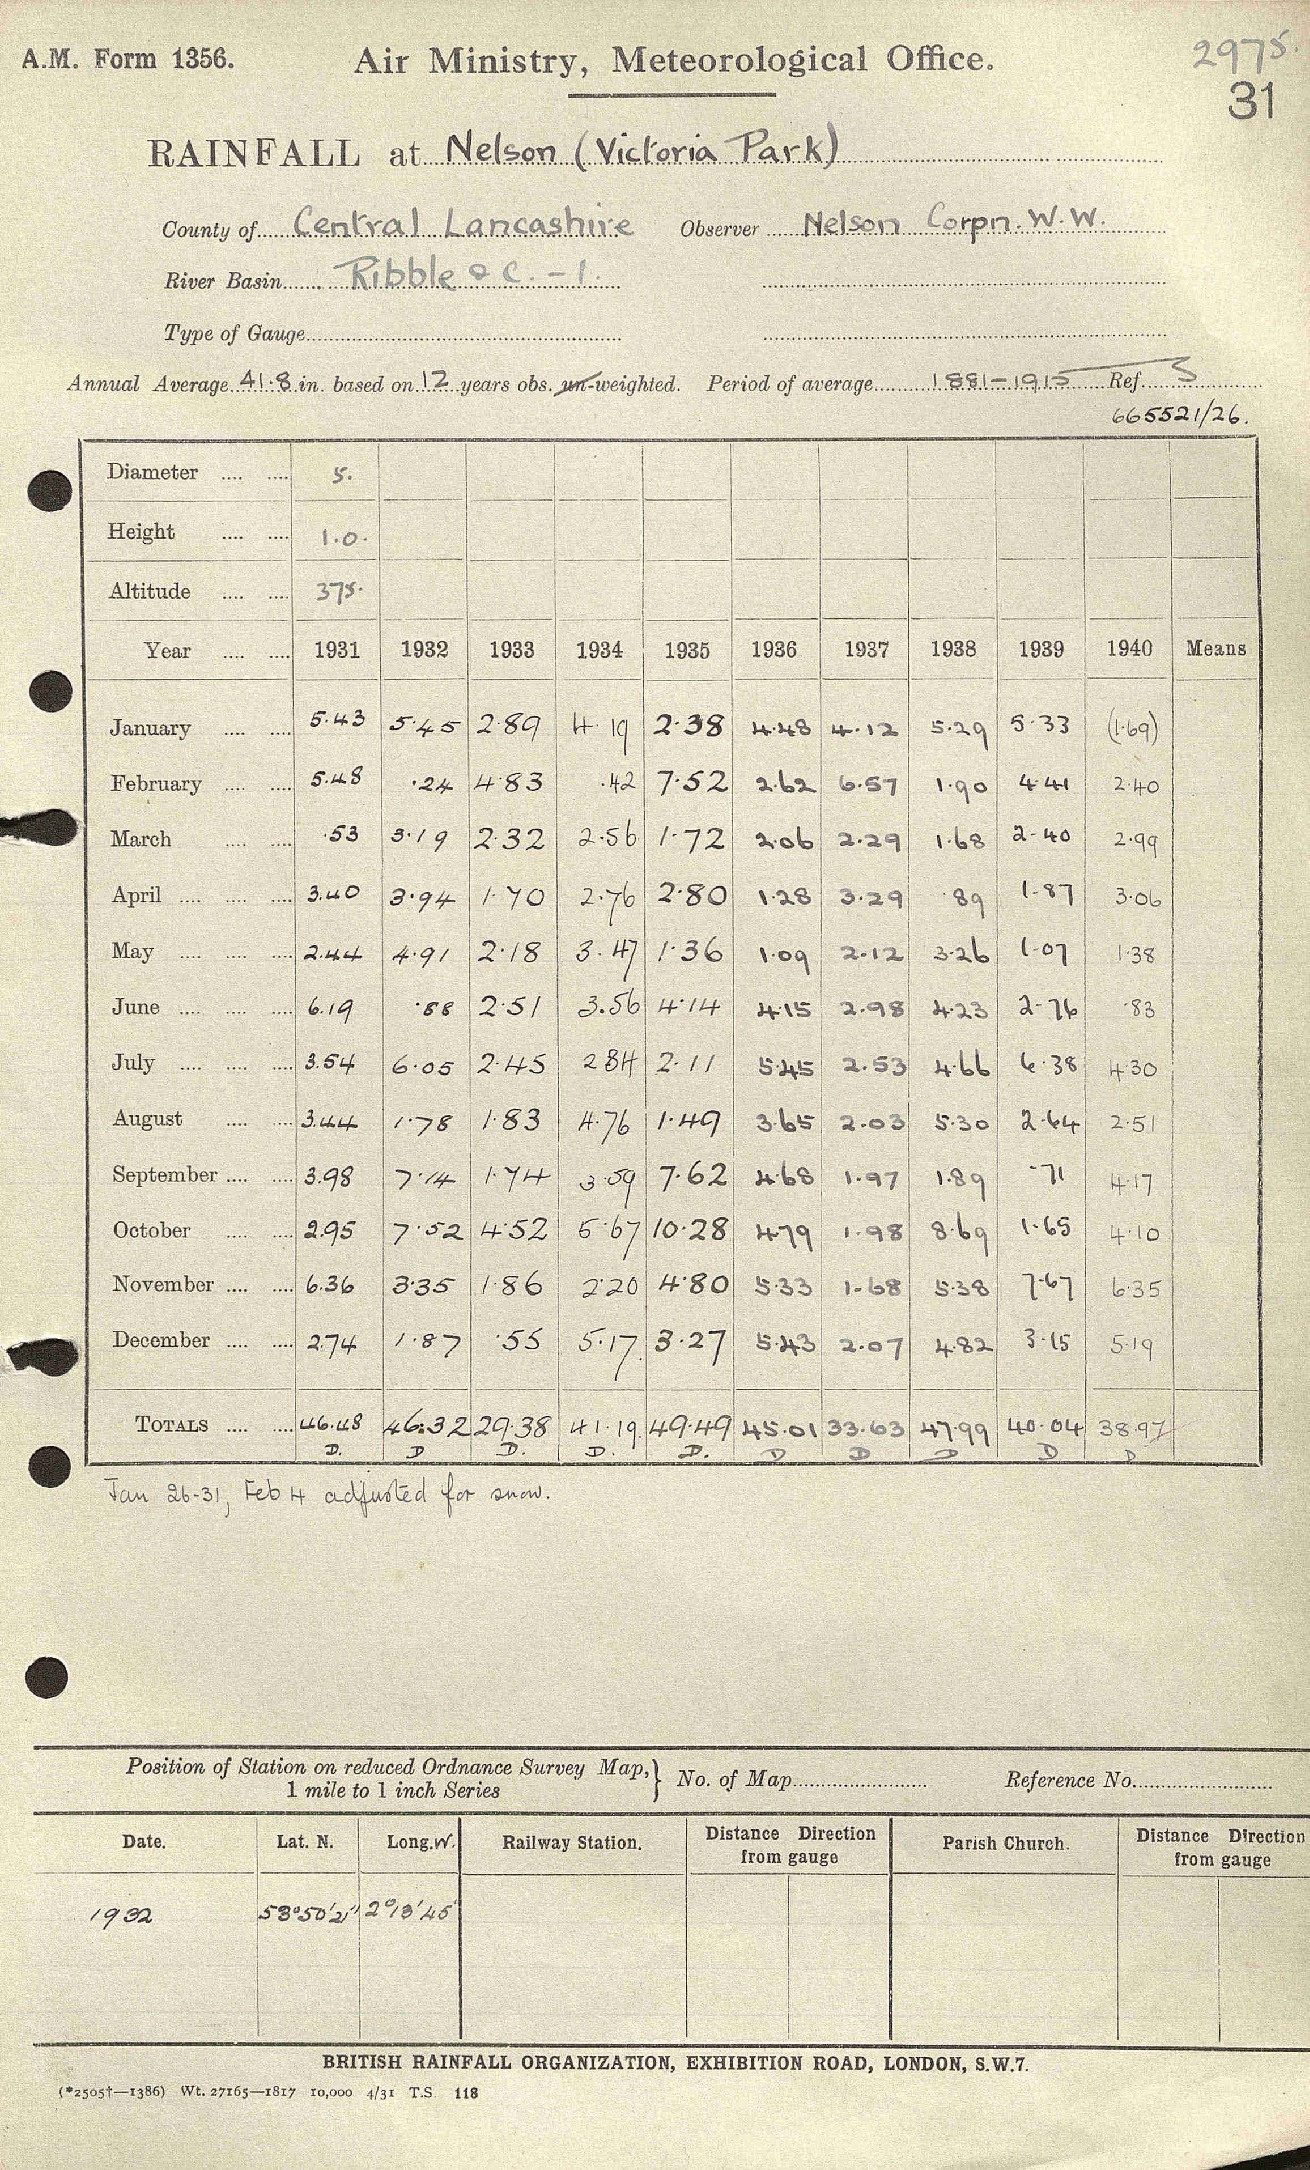 A.M. Form 1356. Air Ministry, Meteorological Office. 2975.
31
RAINFALL at Nelson (Victoria Park)
County of Central Lancashire Observer Nelson Corpn. W.W.
River Basin Ribble & C. – 1.
Type of Gauge
Annual Average 41.8 in. based on 12 years obs. un-weighted. Period of average 1881–1915 Ref. S
665521/26.
Diameter 5.
Height 1.0.
Altitude 375.
Year 1931 1932 1933 1934 1935 1936 1937 1938 1939 1940 Means
January 5.43 5.45 2.89 4.19 2.38 4.48 4.12 5.29 5.33 (1.69)
February 5.48 .24 4.83 .42 7.52 2.62 6.57 1.90 4.41 2.40
March .53 3.19 2.32 2.56 1.72 2.06 2.29 1.68 2.40 2.99
April 3.40 3.94 1.70 2.76 2.80 1.28 3.29 .89 1.87 3.06
May 2.44 4.91 2.18 3.47 1.36 1.09 2.12 3.26 1.07 1.38
June 6.19 .88 2.51 3.56 4.14 4.15 2.98 4.23 2.76 .83
July 3.54 6.05 2.45 2.84 2.11 5.45 2.53 4.66 6.38 4.30
August 3.44 1.78 1.83 4.76 1.49 3.65 2.03 5.30 2.64 2.51
September 3.98 7.14 1.74 3.59 7.62 4.68 1.97 1.89 .71 4.17
October 2.95 7.52 4.52 5.67 10.28 4.79 1.98 8.69 1.65 4.10
November 6.36 3.35 1.86 2.20 4.80 5.33 1.68 5.38 7.67 6.35
December 2.74 1.87 .55 5.17 3.27 5.43 2.07 4.82 3.15 5.19
TOTALS 46.48 46.32 29.38 41.19 49.49 45.01 33.63 47.99 40.04 38.97
D. D D. D. D. D D D D D
Jan 26-31, Feb 4 adjusted for snow.
Position of Station on reduced Ordnance Survey Map,
1 mile to 1 inch Series } No. of Map Reference No.
Date. Lat. N. Long. W. Railway Station. Distance Direction from gauge Parish Church. Distance Direction from gauge
1932 53°50'21" 2°13'45"
BRITISH RAINFALL ORGANIZATION, EXHIBITION ROAD, LONDON, S.W.7.
(*2505†—1386) Wt. 27165—1817 10,000 4/31 T.S. 118